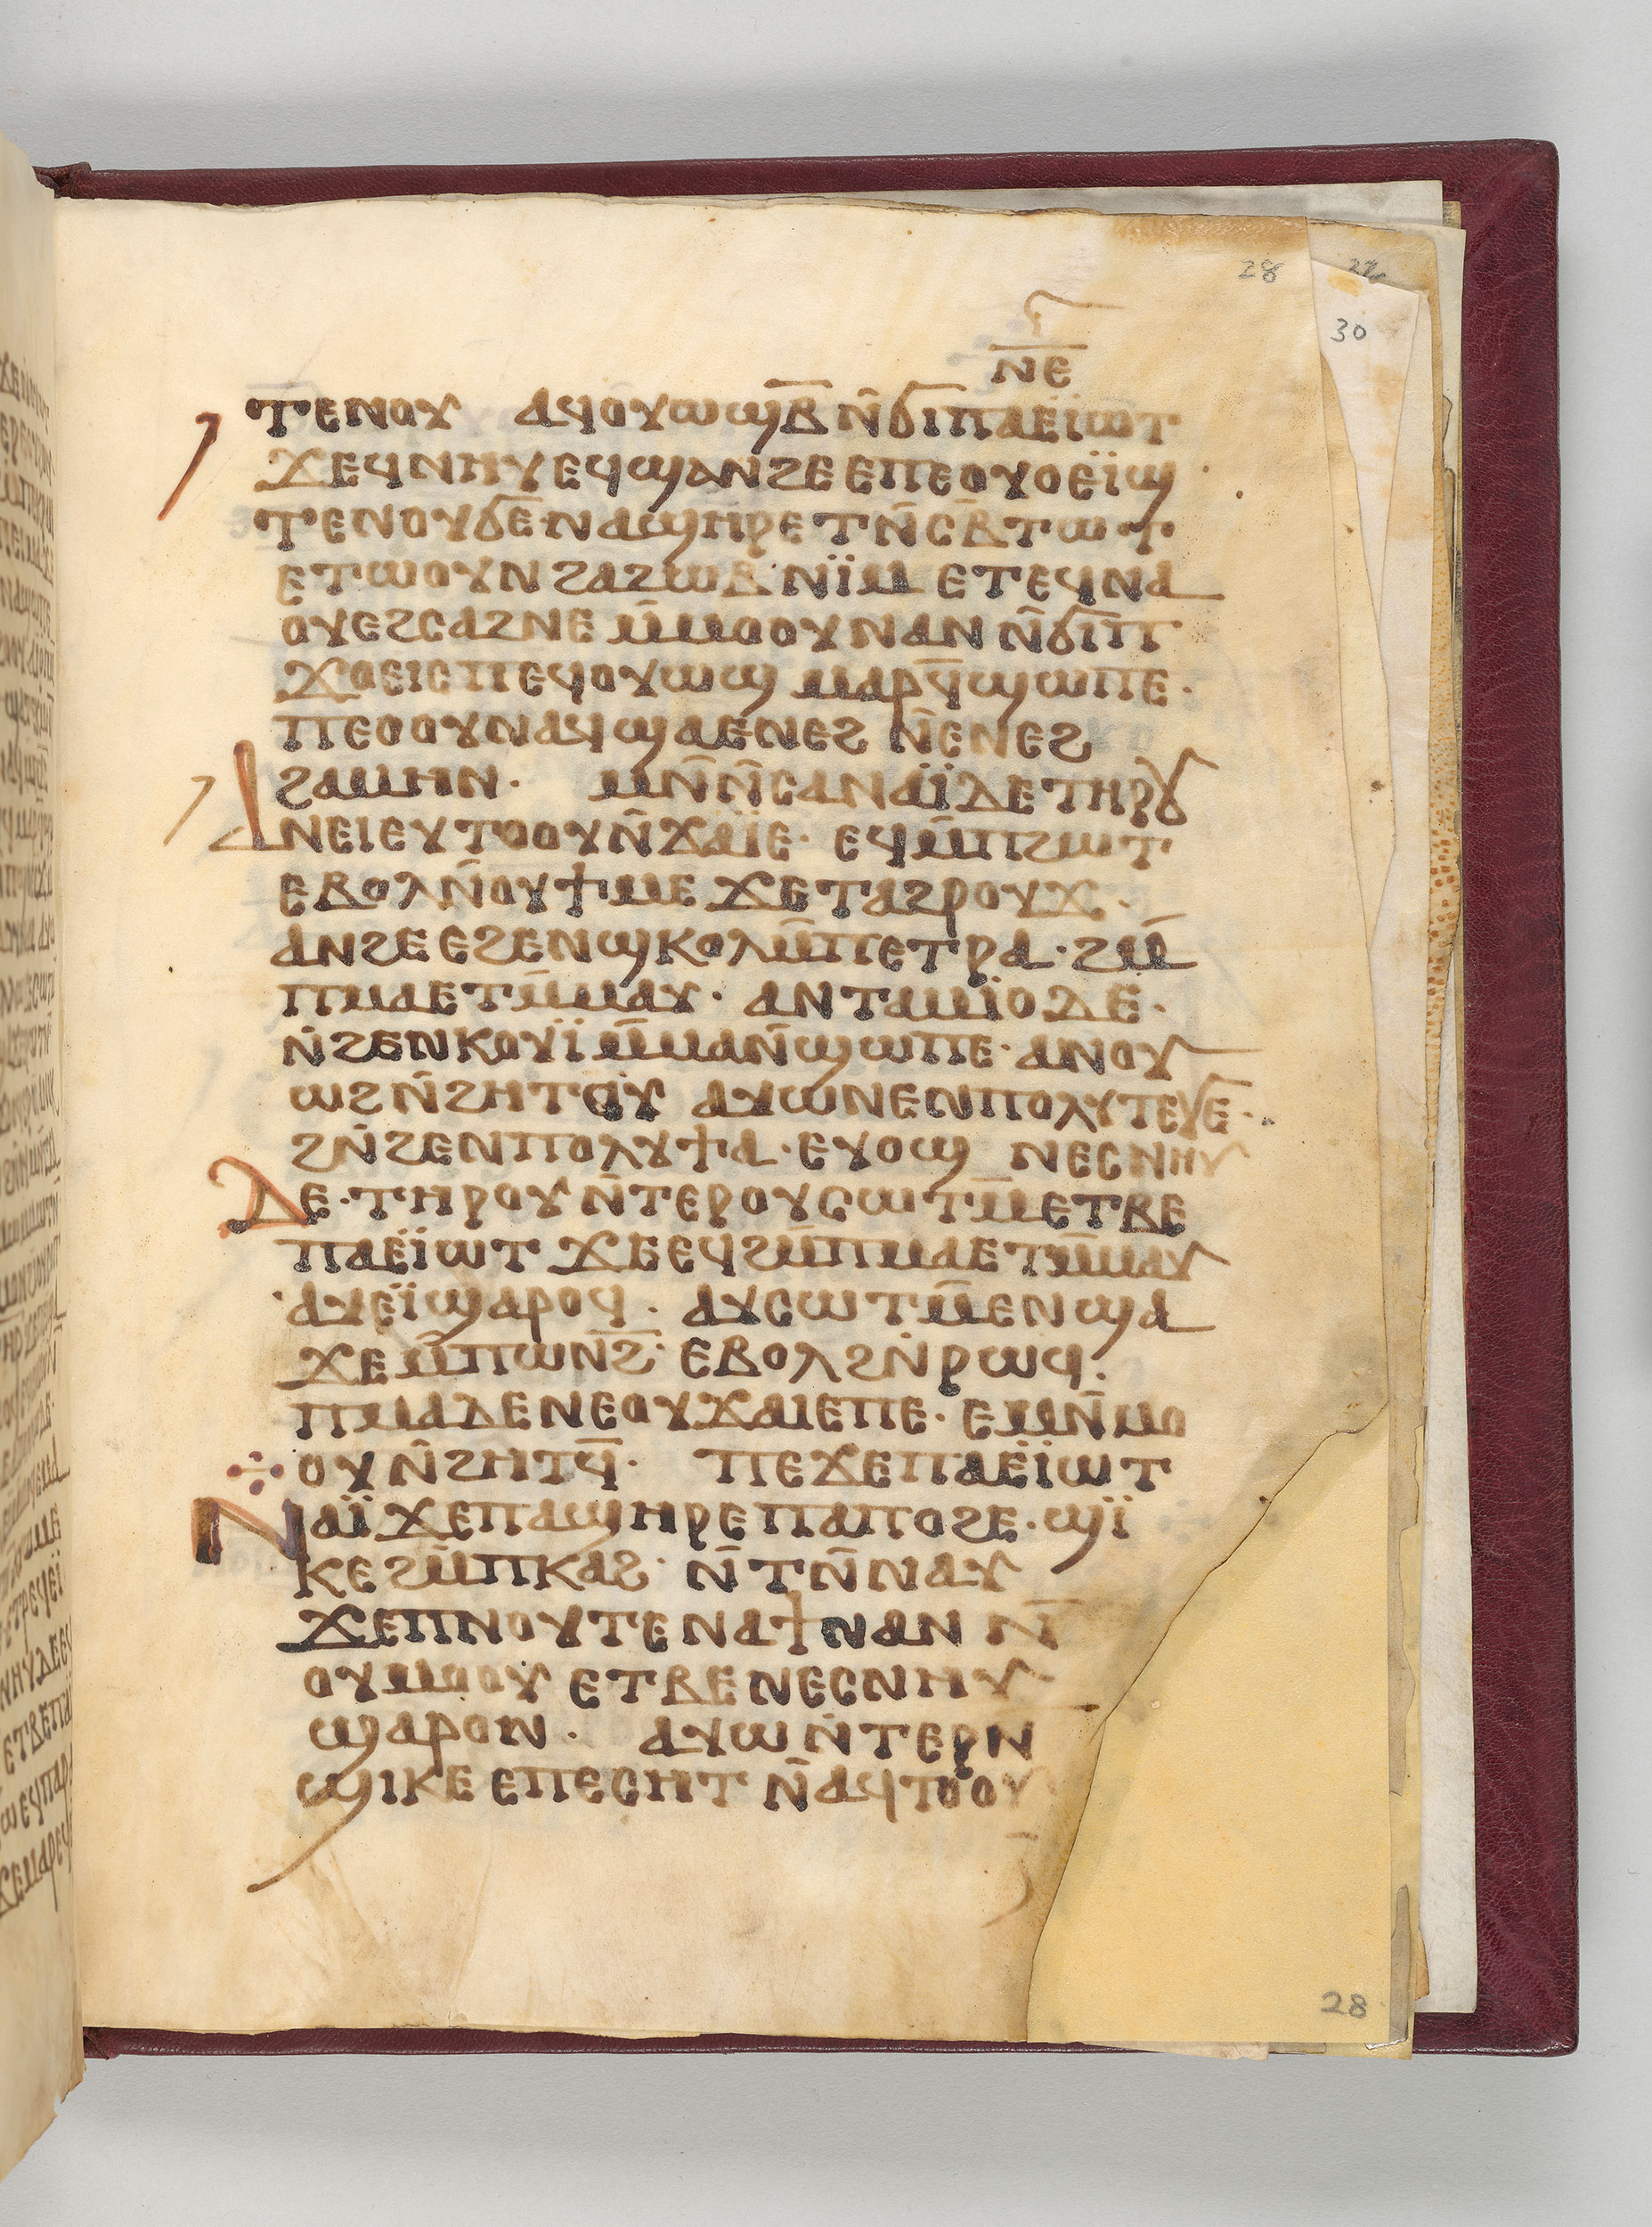 28
22
30
ⲛ̅ⲉ̅
ⲧⲉⲛⲟⲩ ⲁϥⲟⲩⲱϣⲃ̅ ⲛ̄ϭⲓⲡⲁⲉⲓⲱⲧ
ϫⲉϥⲛⲏⲩⲉϥϣⲁⲛϩⲉⲉⲡⲉⲟⲩⲟⲉⲓ̈ϣ
ⲧⲉⲛⲟⲩϭⲉ·ⲛⲁϣⲏⲣⲉⲧⲛ̄ⲥⲃ̄ⲧⲱⲧ
ⲉⲧⲱⲟⲩⲛϩⲁϩⲱⲃ·ⲛⲓ̈ⲙⲉⲧⲉϥⲛⲁ
ⲟⲩⲉϩⲥⲁϩⲛⲉⲙ̄ⲙⲟⲟⲩⲛⲁⲛⲛ̄ϭⲓⲡ
ϫⲟⲉⲓⲥⲡⲉϥⲟⲩⲱϣ ⲙⲁⲣϥ̄ϣⲱⲡⲉ·
ⲡⲉⲟⲟⲩⲛⲁϥϣⲁⲉⲛⲉϩ ⲛ̄ⲉⲛⲉϩ
ϩⲁⲙⲏⲛ· ⲙⲛ̄ⲛ̄ⲥⲁⲛⲁⲓ̈ⲇⲉⲧⲏⲣⲟⲩ
ⲁⲛⲉⲓⲉⲩⲧⲟⲟⲩⲛ̄ϫⲁⲓ̈ⲉ· ⲉϥⲙ̄ⲡϩⲱⲧ
ⲉⲃⲟⲗⲛ̄ⲟⲩϯⲙⲉ ϫⲉⲧⲁϩⲣⲟⲩϫ·
ⲁⲛϩⲉⲉϩⲉⲛϣⲕⲟⲗⲙ̄ⲡⲉⲧⲣⲁ·ϩⲙ̄
ⲡⲙⲁⲉⲧⲙ̄ⲙⲁⲩ· ⲁⲛⲧⲁⲙⲓ̈ⲟⲇⲉ·
ⲛ̄ϩⲉⲛⲕⲟⲩⲓ̈ⲙ̄ⲙⲁⲛ̄ϣⲱⲡⲉ·ⲁⲛⲟⲩ
ⲱϩⲛ̄ϩⲏⲧⲟⲩ ⲁⲩⲱⲛⲉⲛⲡⲟⲗⲩⲧⲉⲩⲉ·
ϩⲛ̄ϩⲉⲛⲡⲟⲗⲩϯⲁ·ⲉⲩⲟϣ ⲛⲉⲥⲛⲏⲩ
ⲇⲉ·ⲧⲏⲣⲟⲩⲛ̄ⲧⲉⲣⲟⲩⲥⲱⲧⲙ̄ⲉⲧⲃⲉ
ⲡⲁⲉⲓ̈ⲱⲧ ϫⲉⲉϥϩⲙ̄ⲡⲙⲁⲉⲧⲙ̄ⲙⲁⲩ
ⲁⲩⲉⲓ̈ϣⲁⲣⲟϥ· ⲁⲩⲥⲱⲧⲙ̄ⲉⲛϣⲁ
ϫⲉⲙ̄ⲡⲱⲛϩ̄· ⲉⲃⲟⲗϩⲛ̄ⲣⲱϥ·
ⲡⲙⲁⲇⲉⲛⲉⲟⲩϫⲁⲓⲉⲡⲉ· ⲉⲙⲛ̄ⲙⲟ
ⲟⲩⲛ̄ϩⲏⲧϥ̄· ⲡⲉϫⲉⲡⲁⲉⲓ̈ⲱⲧ
ⲛⲁⲓ̈ϫⲉⲡⲁϣⲏⲣⲉⲡⲁⲡⲟϩⲉ·ϣⲓ̈
ⲕⲉϩⲙ̄ⲡⲕⲁϩ· ⲛ̄ⲧⲛ̄ⲛⲁⲩ
ϫⲉⲡⲛⲟⲩⲧⲉⲛⲁϯⲛⲁⲛ ⲛ̄
ⲟⲩⲙⲟⲟⲩ ⲉⲧⲃⲉⲛⲉⲥⲛⲏⲩ
ϣⲁⲣⲟⲛ· ⲁⲩⲱⲛ̄ⲧⲉⲣⲛ
ϣⲓⲕⲉⲉⲡⲉⲥⲏⲧ ⲛ̄ⲁϥⲧⲟⲟⲩ
28